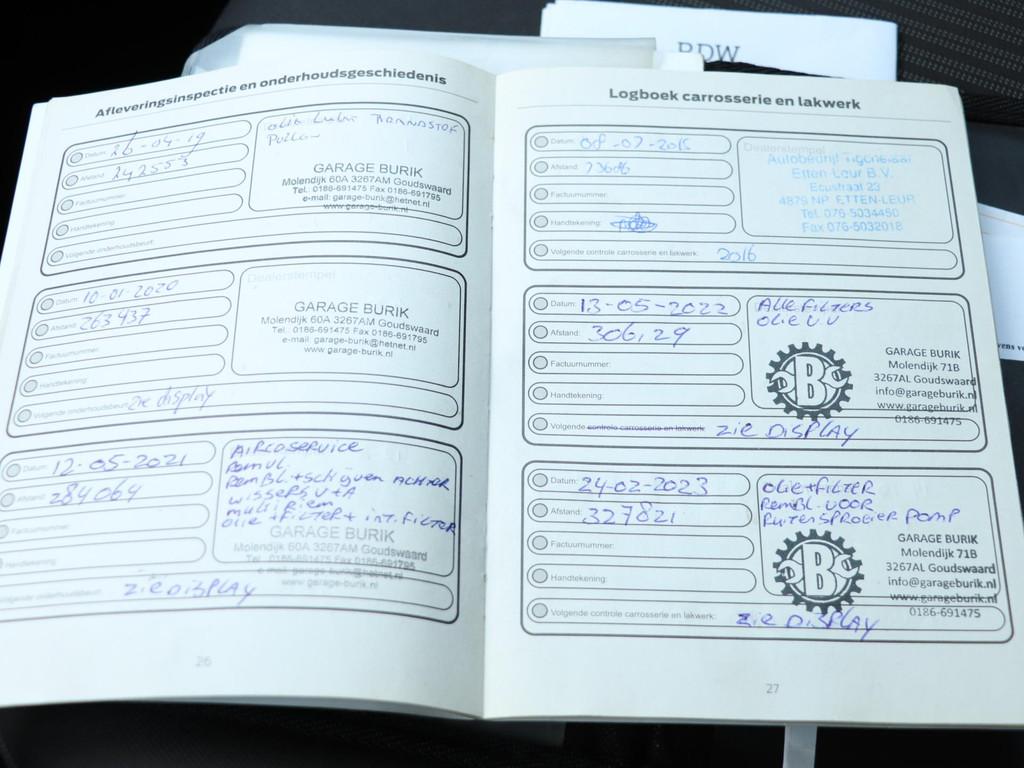 RDW
Afleveringsinspectie en onderhoudsgeschiedenis
Datum: 26-04-19
Afstand: 242553
Factuurnummer:
Handtekening:
Volgende onderhoudsbeurt:
BRANDSTOF
GARAGE BURIK
Molendijk 60A 3267AM Goudswaard
Tel.: 0186-691475 Fax 0186-691795
e-mail: garage-burik@hetnet.nl
www.garage-burik.nl
Datum: 10-01-2020
Afstand: 263437
Factuurnummer:
Handtekening:
Volgende onderhoudsbeurt: Zie display
Dealerstempel
GARAGE BURIK
Molendijk 60A 3267AM Goudswaard
Tel.: 0186-691475 Fax 0186-691795
e-mail: garage-burik@hetnet.nl
www.garage-burik.nl
Datum: 12-05-2021
Afstand: 284064
Factuurnummer:
Handtekening:
Volgende onderhoudsbeurt: ZIE DISPLAY
AIRCOSERVICE
REMVL.
REMBL.+SCHIJVEN ACHTER
WISSERS V+A
MULTIRIEM
OLIE +FILTER+ INT.FILTER
GARAGE BURIK
Molendijk 60A 3267AM Goudswaard
Tel.: 0186-691475 Fax 0186-691795
e-mail: garage-burik@hetnet.nl
www.garage-burik.nl
26
Logboek carrosserie en lakwerk
Datum: 08-07-2015
Afstand: 73686
Factuurnummer:
Handtekening:
Volgende controle carrosserie en lakwerk: 2016
Dealerstempel
Autobedrijf
Etten-Leur B.V.
Ecustraat 23
4879 NP ETTEN-LEUR
Tel. 076-5034450
Fax 076-5032018
Datum: 13-05-2022
Afstand: 306,29
Factuurnummer:
Handtekening:
Volgende controle carrosserie en lakwerk: ZIE DISPLAY
ALLE FILTERS
OLIE V.V
B
GARAGE BURIK
Molendijk 71B
3267AL Goudswaard
info@garageburik.nl
www.garageburik.nl
0186-691475
Datum: 24-02-2023
Afstand: 327821
Factuurnummer:
Handtekening:
Volgende controle carrosserie en lakwerk: ZIE DISPLAY
OLIE+FILTER
REMBL. VOOR
RUITENSPROEIER POMP
B
GARAGE BURIK
Molendijk 71B
3267AL Goudswaard
info@garageburik.nl
www.garageburik.nl
0186-691475
27